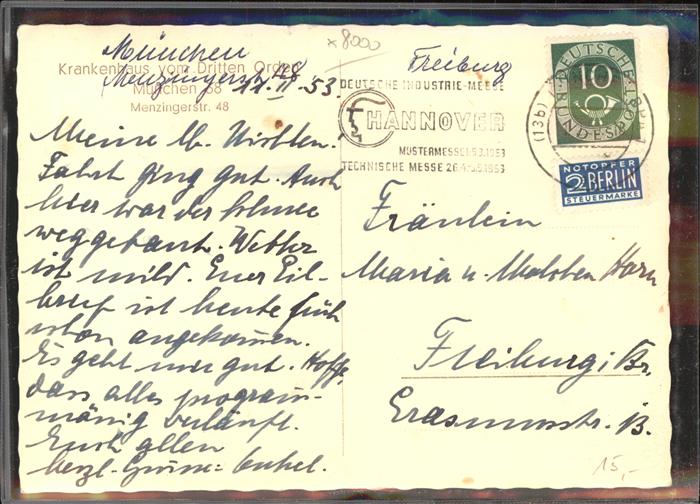 München
Krankenhaus vom Dritten Orden
München 68
Menzingerstr. 48
Menzingerstr. 48
11. II. 53.
x 8000
Freiburg
DEUTSCHE INDUSTRIE-MESSE
HANNOVER
MUSTERMESSE
TECHNISCHE MESSE
1953
(13b)
DEUTSCHE
BUNDESPOST
10
NOTOPFER
2 BERLIN
STEUERMARKE
Meine lb.
Fahrt ging gut. Auch
hier war der Schnee
weggetaut. Wetter
ist mild. Euer Eil-
brief ist heute früh
schon angekommen.
Es geht mir gut. Hoffe,
dass alles program-
mäßig verläuft.
Euch allen
herzl. Grüsse
Fräulein
Maria u.
Freiburg i Br.
Erasmusstr.
15,-